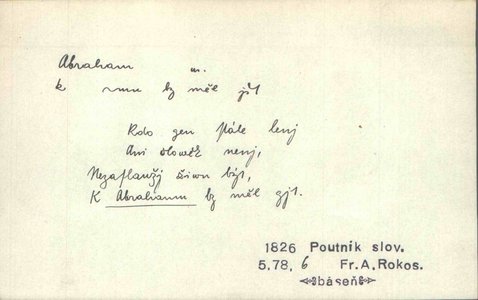 Abraham m.
k ~mu by měl jjt
Kdo gen stále lenj
Ani člowěk nenj,
Nezaslaužj žiwu být,
K Abrahamu by měl gjt.
1826 Poutník slov.
5,78, 6 Fr.A.Rokos.
báseň